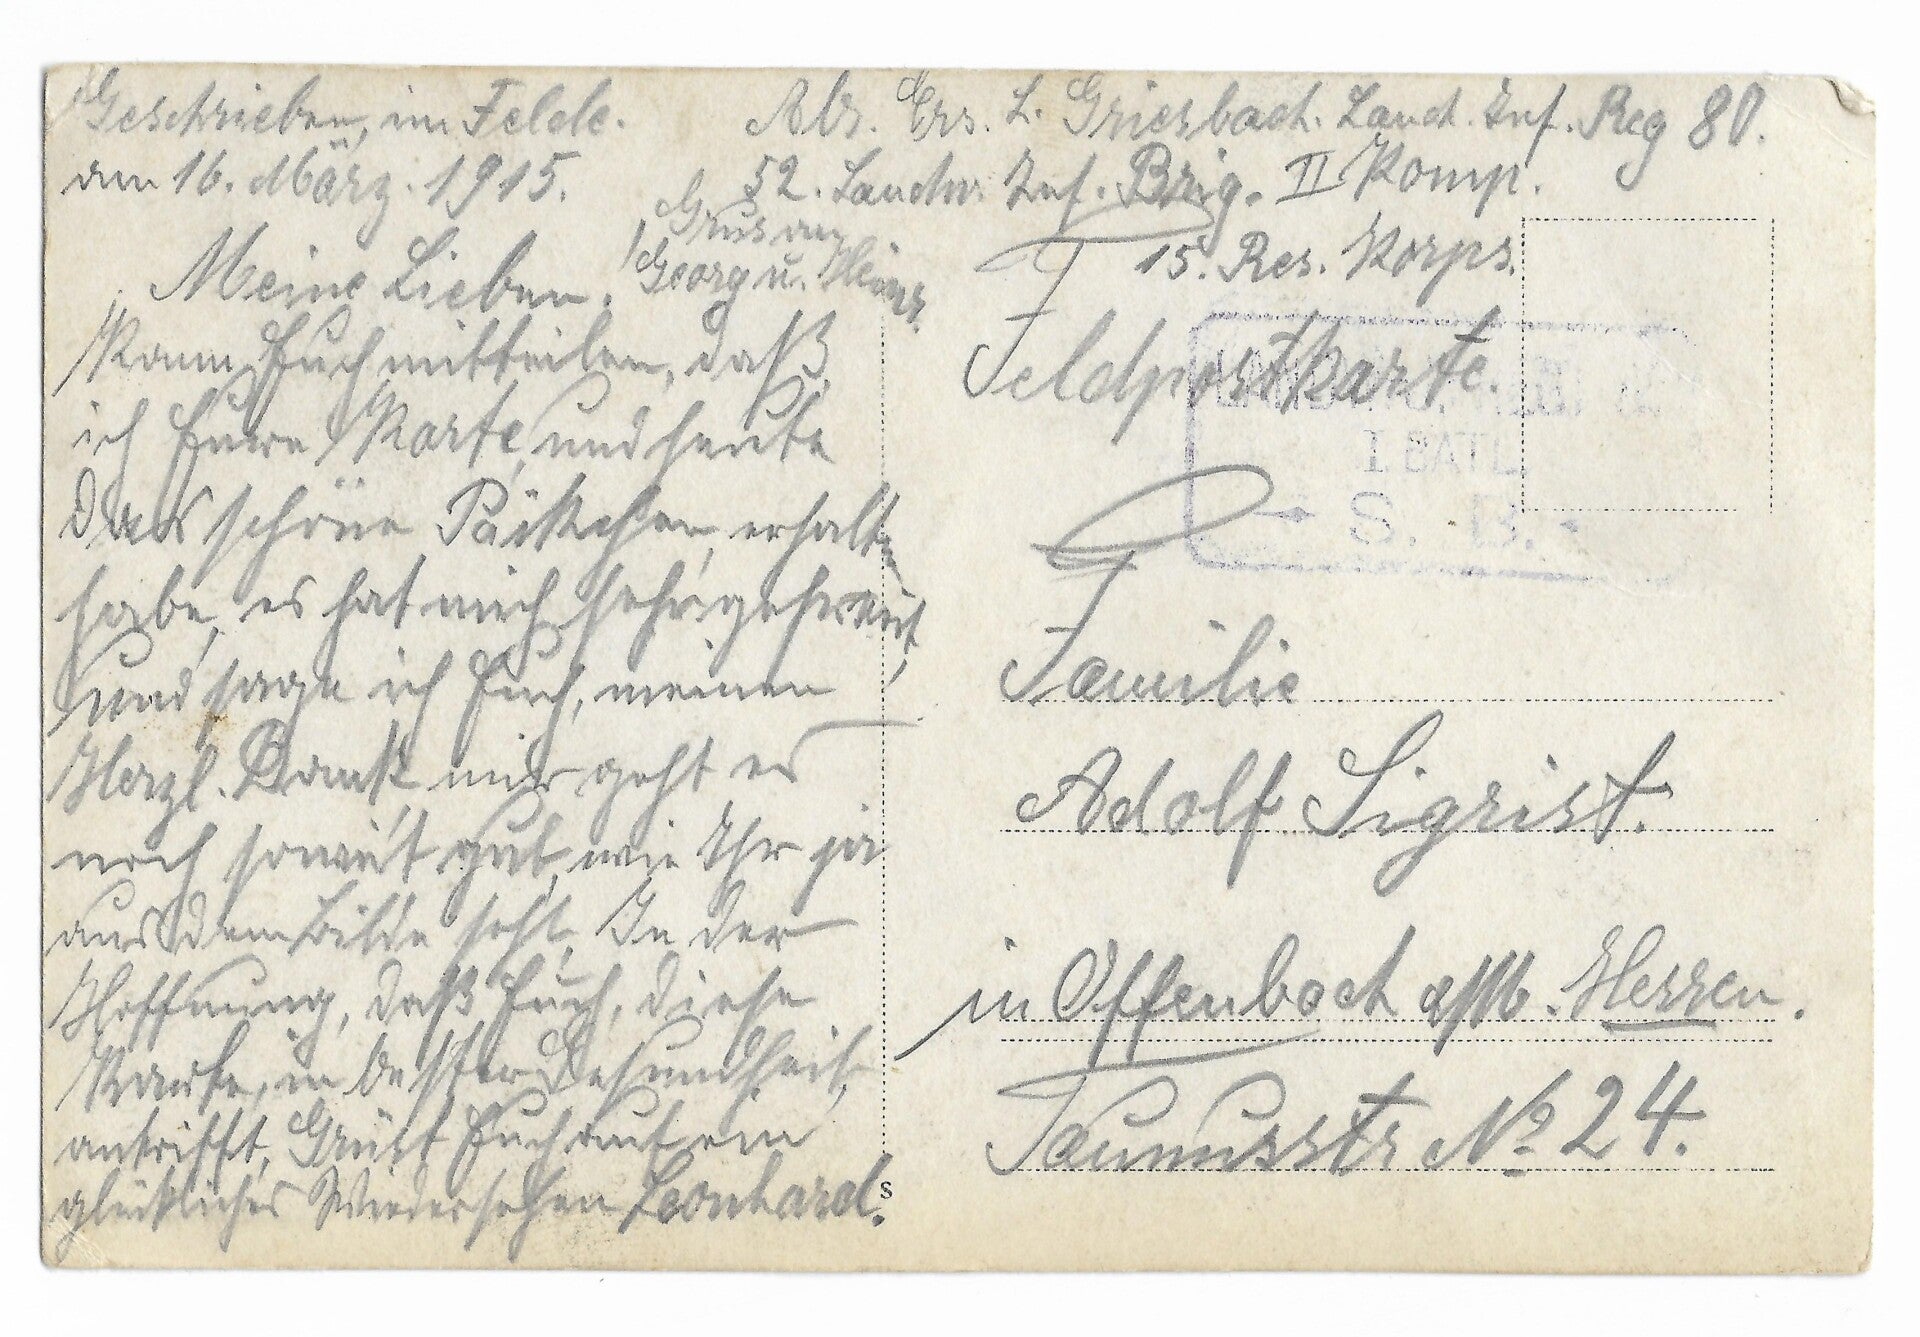 Geschrieben, im Felde.
am 16. März. 1915.
Abs. Ers. L. Griesbach. Landw. Inf. Reg 80.
52. Landw. Inf. Brig. II Komp.
15. Res. Korps.
Grus an
Georg u. Heinr.
Meine Lieben!
Kann Euch mitteilen, daß
ich Eure Karte, und heute
das schöne Päckchen, erhalten
habe, es hat mich sehr gefreut,
und sage ich Euch, meinen
Herzl. Dank mir geht es
noch soweit gut, wie Ihr ja
aus dem Bilde seht, In der
Hoffnung, daß Euch, diese
Karte, in bester Gesundheit,
antrifft, Grüßt Euch auf ein
glückliches Wiedersehen Leonhard.
Feldpostkarte.
I. BATL.
S. B.
Familie
Adolf Sigrist.
in Offenbach a/M. Hessen.
Taunusstr No 24.
s